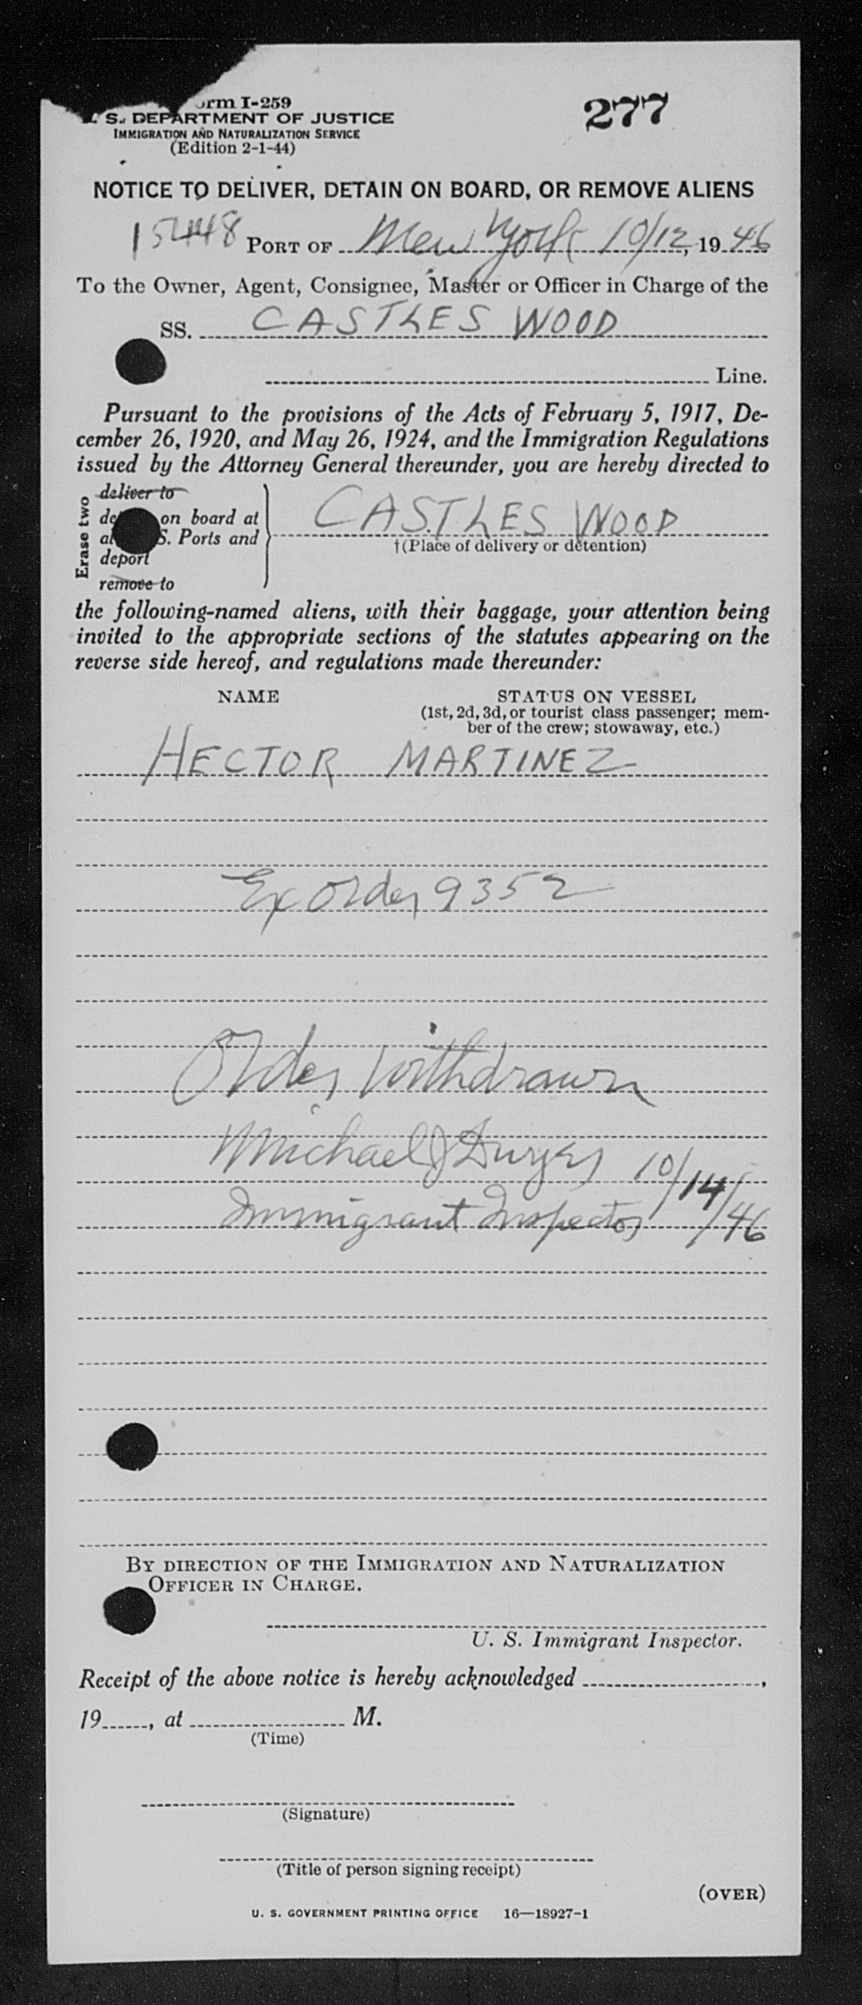 orm I-259
S. DEPARTMENT OF JUSTICE
IMMIGRATION AND NATURALIZATION SERVICE
(Edition 2-1-44)
277
NOTICE TO DELIVER, DETAIN ON BOARD, OR REMOVE ALIENS
15448 PORT OF New York 10/12, 1946
To the Owner, Agent, Consignee, Master or Officer in Charge of the
SS. CASTLES WOOD
Line.
Pursuant to the provisions of the Acts of February 5, 1917, De-
cember 26, 1920, and May 26, 1924, and the Immigration Regulations
issued by the Attorney General thereunder, you are hereby directed to
Erase two
deliver to
de on board at
al S. Ports and
deport
remove to
CASTLES WOOD
†(Place of delivery or detention)
the following-named aliens, with their baggage, your attention being
invited to the appropriate sections of the statutes appearing on the
reverse side hereof, and regulations made thereunder:
NAME STATUS ON VESSEL
(1st, 2d, 3d, or tourist class passenger; mem-
ber of the crew; stowaway, etc.)
HECTOR MARTINEZ
Ex Order 9352
Order Withdrawn
Michael J Dwyer 10/14/46
Immigrant Inspector
BY DIRECTION OF THE IMMIGRATION AND NATURALIZATION
OFFICER IN CHARGE.
U. S. Immigrant Inspector.
Receipt of the above notice is hereby acknowledged ,
19 , at M.
(Time)
(Signature)
(Title of person signing receipt)
(OVER)
U. S. GOVERNMENT PRINTING OFFICE 16—18927-1